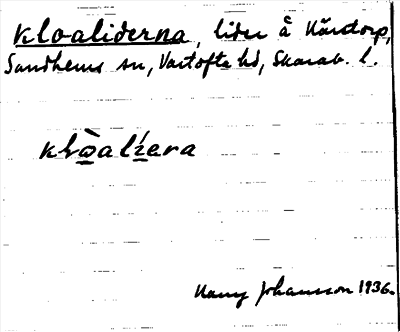 Kloaliderna, lider å Kårtorp,
Sandhems sn, Vartofta hd, Skarab. l.
Harry Johansson 1936.